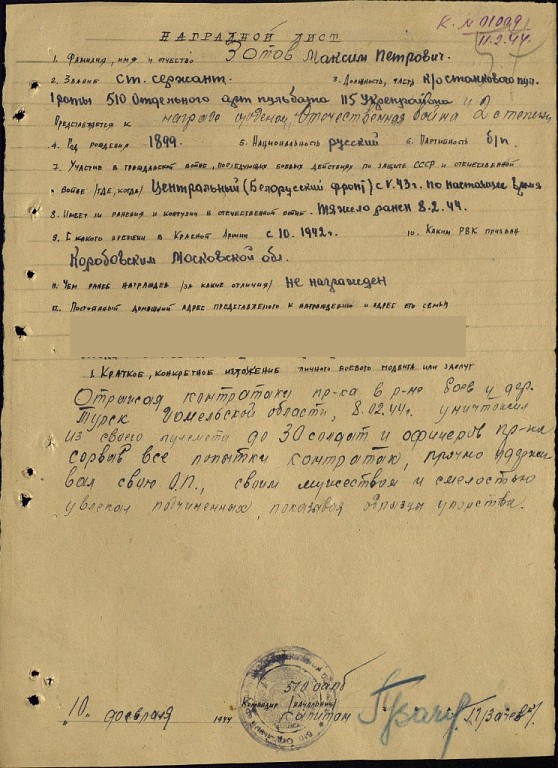 К. № 01099
11.2.44.
НАГРАДНОЙ ЛИСТ
1. Фамилия, имя и отчество Зотов Максим Петрович.
2. Звание ст. сержант. 3. Должность, часть к/о станкового пул.
1 роты 510 Отдельного арт пульбатна 115 Укрепрайона
Представляется к награде орденом „Отечественная война 2 степени
4. Год рождения 1899. 5. Национальность русский 6. Партийность б/п.
7. Участие в гражданской войне, последующих боевых действиях по защите СССР и отечественной
войне (где, когда) Центральный (Белорусский фронт) с V.43г. по настоящее время
8. Имеет ли ранения и контузии в отечественной войне Тяжело ранен 8.2.44.
9. С какого времени в Красной Армии с 10.1942г. 10. Каким РВК призван
Коробовским Московской обл.
11. Чем ранее награжден (за какие отличия) Не награжден
12. Постоянный домашний адрес представляемого к награждению и адрес его семьи
1. Краткое, конкретное изложение личного боевого подвига или заслуг
Отражая контратаки пр-ка в р-не боев и дер.
Турск Гомельской области, 8.02.44г. уничтожил
из своего пулемета до 30 солдат и офицеров пр-ка
сорвав все попытки контратак, прочно удержи
вал свою О.П., своим мужеством и смелостью
увлекал подчиненных, показывая образцы упорства.
510 оапб
Командир (начальник)
Капитан
/Грачев/
„10" февраля 1944